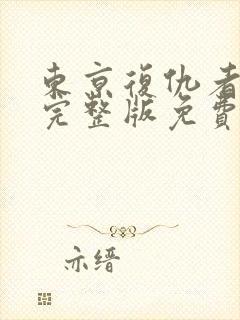 東京復仇者
完整版免費
亦缙